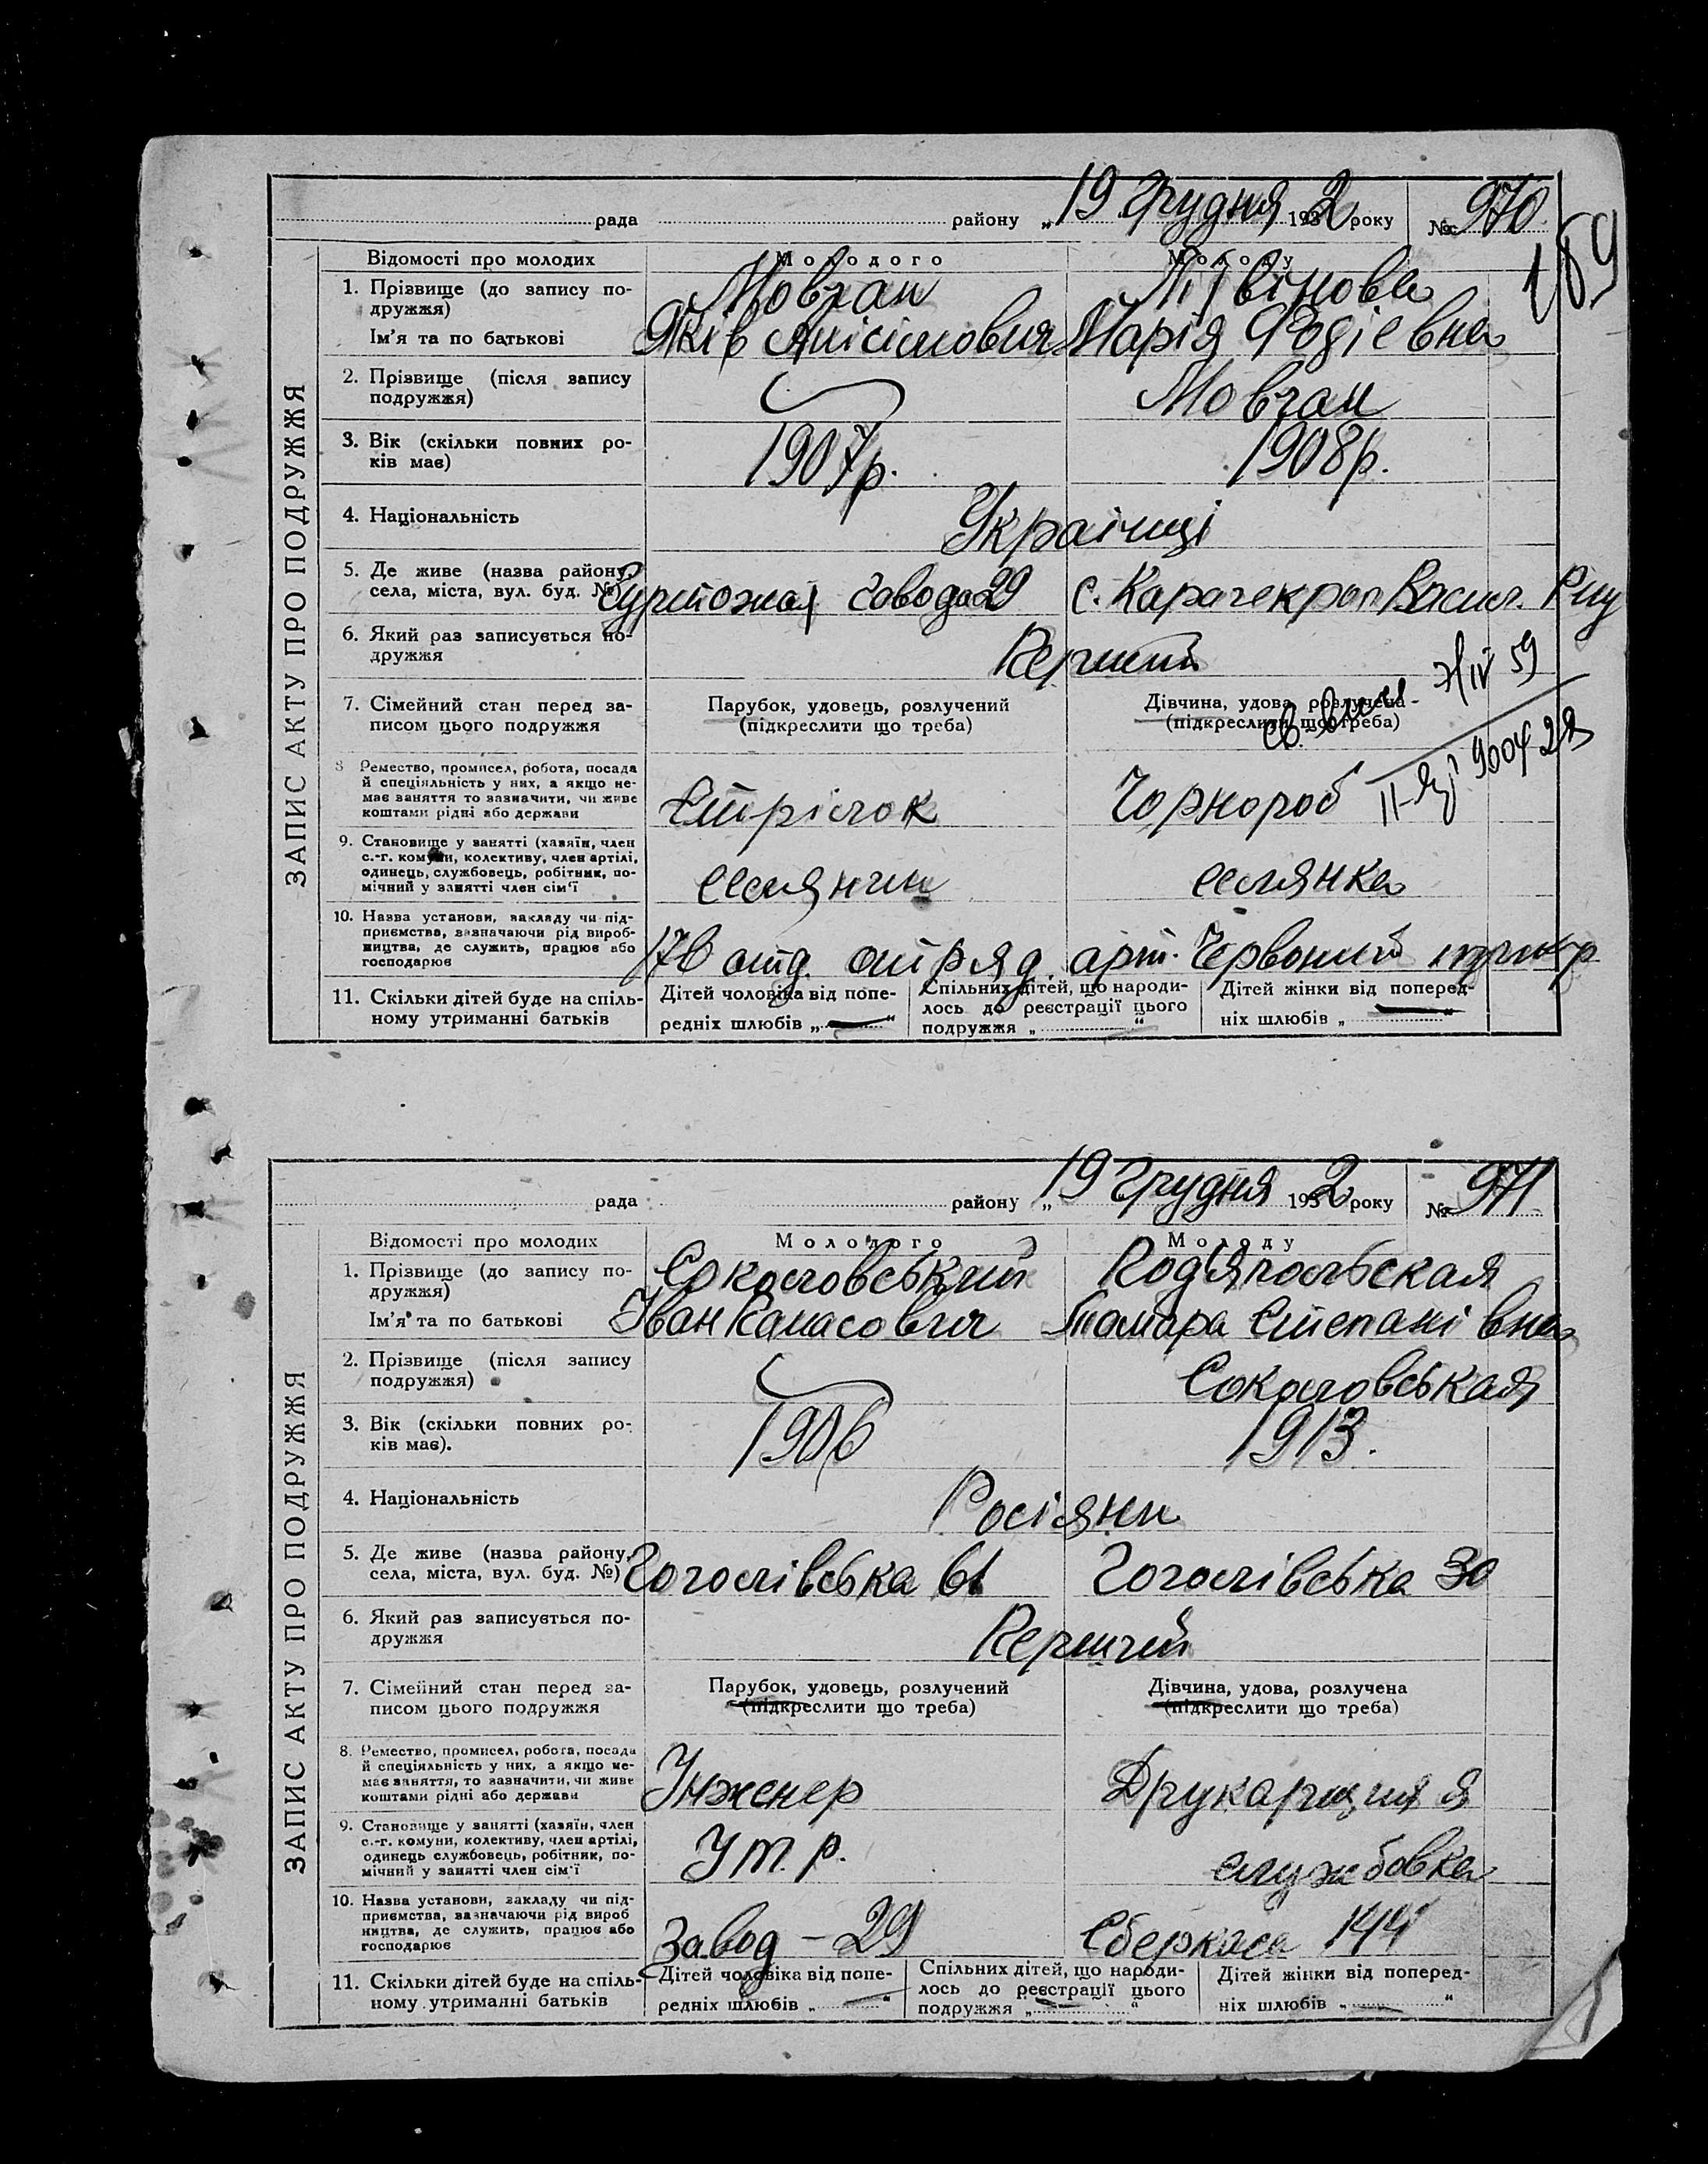 рада району „19 Грудня 1932 року № 970
159
ЗАПИС АКТУ ПРО ПОДРУЖЖЯ
Відомості про молодих Молодого Молоду
1. Прізвище (до запису по-
дружжя)
Мовчан
Ім'я та по батькові
Яків Анісімович Марія Фодіевна
2. Прізвище (після запису
подружжя)
Мовчан
3. Вік (скільки повних ро-
ків має)
1907р. 1908р.
4. Національність
Українці
5. Де живе (назва району,
села, міста, вул. буд. №)
Гуртожит завода 29 с. Карачекрак Васил. Р-ну
6. Який раз записується по-
дружжя
Перший
7. Сімейний стан перед за-
писом цього подружжя
Парубок, удовець, розлучений
(підкреслити що треба)
Дівчина, удова, розлучена
(підкреслити що треба)
8 Ремество, промисел, робота, посада
й спеціяльність у них, а якщо не-
має заняття то зазначити, чи живе
коштами рідні або держави
Стрілок Чорнороб
9. Становище у занятті (хазяїн, член
с.-г. комуни, колективу, член артілі,
одинець, службовець, робітник, по-
мічний у занятті член сім'ї
селянин селянка
10. Назва установи, закладу чи під-
приємства, зазначаючи рід вироб-
ництва, де служить, працює або
господарює
отд. отряд. арт. Червоний
11. Скільки дітей буде на спіль-
ному утриманні батьків
Дітей чоловіка від попе-
редніх шлюбів „ — “
Спільних дітей, що народи-
лось до реєстрації цього
подружжя „ “
Дітей жінки від поперед-
ніх шлюбів „ — “
рада району „19 Грудня 1932 року № 971
ЗАПИС АКТУ ПРО ПОДРУЖЖЯ
Відомості про молодих Молодого Молоду
1. Прізвище (до запису по-
дружжя)
Соколовський Под'япольская
Ім'я та по батькові
Іван Панасович Тамара Степанівна
2. Прізвище (після запису
подружжя)
Соколовськая
3. Вік (скільки повних ро-
ків має).
1906 1913.
4. Національність
Росіяни
5. Де живе (назва району,
села, міста, вул. буд. №)
Гоголівська 61 Гоголівська 30
6. Який раз записується по-
дружжя
Перший
7. Сімейний стан перед за-
писом цього подружжя
Парубок, удовець, розлучений
(підкреслити що треба)
Дівчина, удова, розлучена
(підкреслити що треба)
8. Ремество, промисел, робота, посада
й спеціяльність у них, а якщо не-
має заняття, то зазначити, чи живе
коштами рідні або держави
Інженер
9. Становище у занятті (хазяїн, член
с.-г. комуни, колективу, член артілі,
одинець службовець, робітник, по-
мічний у занятті член сім'ї
І т. р. службовка
10. Назва установи, закладу чи під-
приємства, зазначаючи рід вироб
ництва, де служить, працює або
господарює
Завод – 29 Сберкаса 144
11. Скільки дітей буде на спіль-
ному утриманні батьків
Дітей чоловіка від попе-
редніх шлюбів „ — “
Спільних дітей, що народи-
лось до реєстрації цього
подружжя „ — “
Дітей жінки від поперед-
ніх шлюбів „ — “